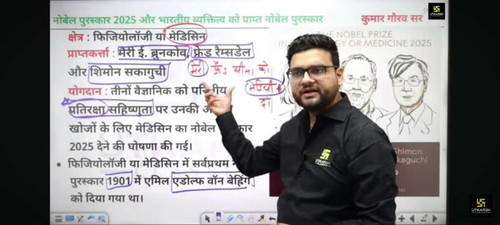 नोबेल पुरस्कार 2025 और भारतीय व्यक्तित्व को प्राप्त नोबेल पुरस्कार
कुमार गौरव सर
क्षेत्र : फिजियोलॉजी या मेडिसिन
प्राप्तकर्ता : मैरी ई. ब्रूनकोव, फ्रेड रैम्सडेल
और शिमोन सकागुची
योगदान : तीनों वैज्ञानिक को
प्रतिरक्षा सहिष्णुता पर उनकी
खोजों के लिए मेडिसिन का नोबेल
2025 देने की घोषणा की गई।
• फिजियोलॉजी या मेडिसिन में सर्वप्रथम
पुरस्कार 1901 में एमिल एडोल्फ वॉन बेहरिंग
को दिया गया था।
THE NOBEL PRIZE
OR MEDICINE 2025
Shimon
UTKARSH